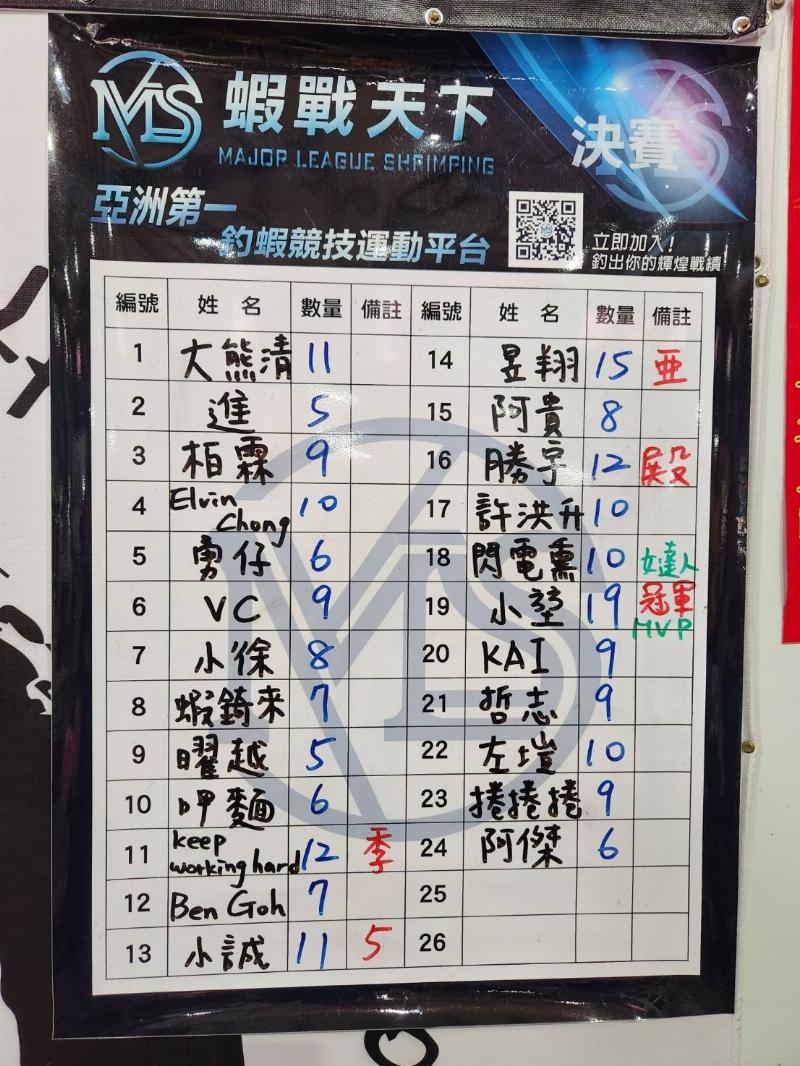 MLS 蝦戰天下 決賽
MAJOR LEAGUE SHRIMPING
亞洲第一
釣蝦競技運動平台
立即加入!
釣出你的輝煌戰績
編號 姓名 數量 備註 編號 姓名 數量 備註
1 大熊清 11 14 昱翔 15 亜
2 進 5 15 阿貴 8
3 柏霖 9 16 勝亨 12 殿
4 Elvin Chong 10 17 許洪升 10
5 勇仔 6 18 閃電熏 10 女達人
6 VC 9 19 小堃 19 冠軍 MVP
7 小徐 8 20 KAI 9
8 蝦錡來 7 21 哲志 9
9 曜越 5 22 左塏 10
10 呷麵 6 23 捲捲捲 9
11 keep working hard 12 季 24 阿傑 6
12 Ben Goh 7 25
13 小誠 11 5 26